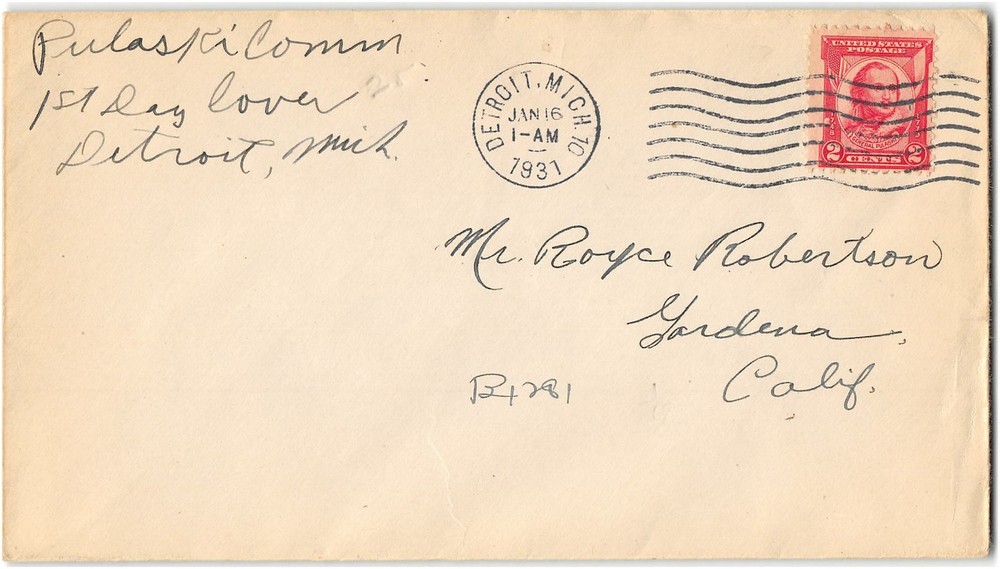 Pulaski Comm
1st Day Cover
Detroit, Mich.
DETROIT, MICH. 10
JAN 16
1-AM
1931
UNITED STATES
POSTAGE
GENERAL PULASKI
2 CENTS 2
Mr. Royce Robertson
Gardena,
Calif.